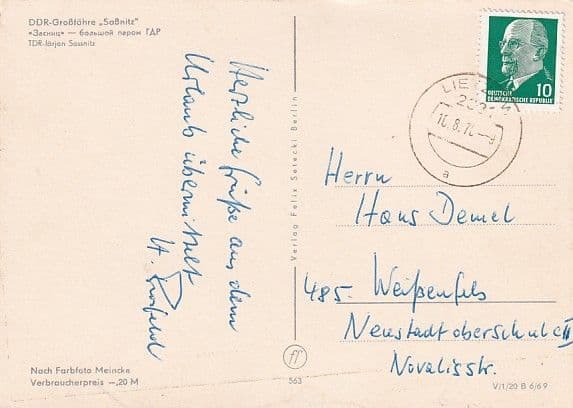 DDR-Großfähre „Saßnitz"
«Засниц» — большой паром ГДР
TDR-färjan Sassnitz
Herzliche Grüße aus dem
Urlaub übermittelt
H.
Verlag Felix Setecki Berlin
DEUTSCHE
DEMOKRATISCHE REPUBLIK
10
10.8.7
a
Herrn
Hans Demel
485. Weißenfels
Neustadtoberschule II
Novalisstr.
Nach Farbfoto Meincke
Verbraucherpreis –,20 M
ff
563
V/1/20 B 6/69